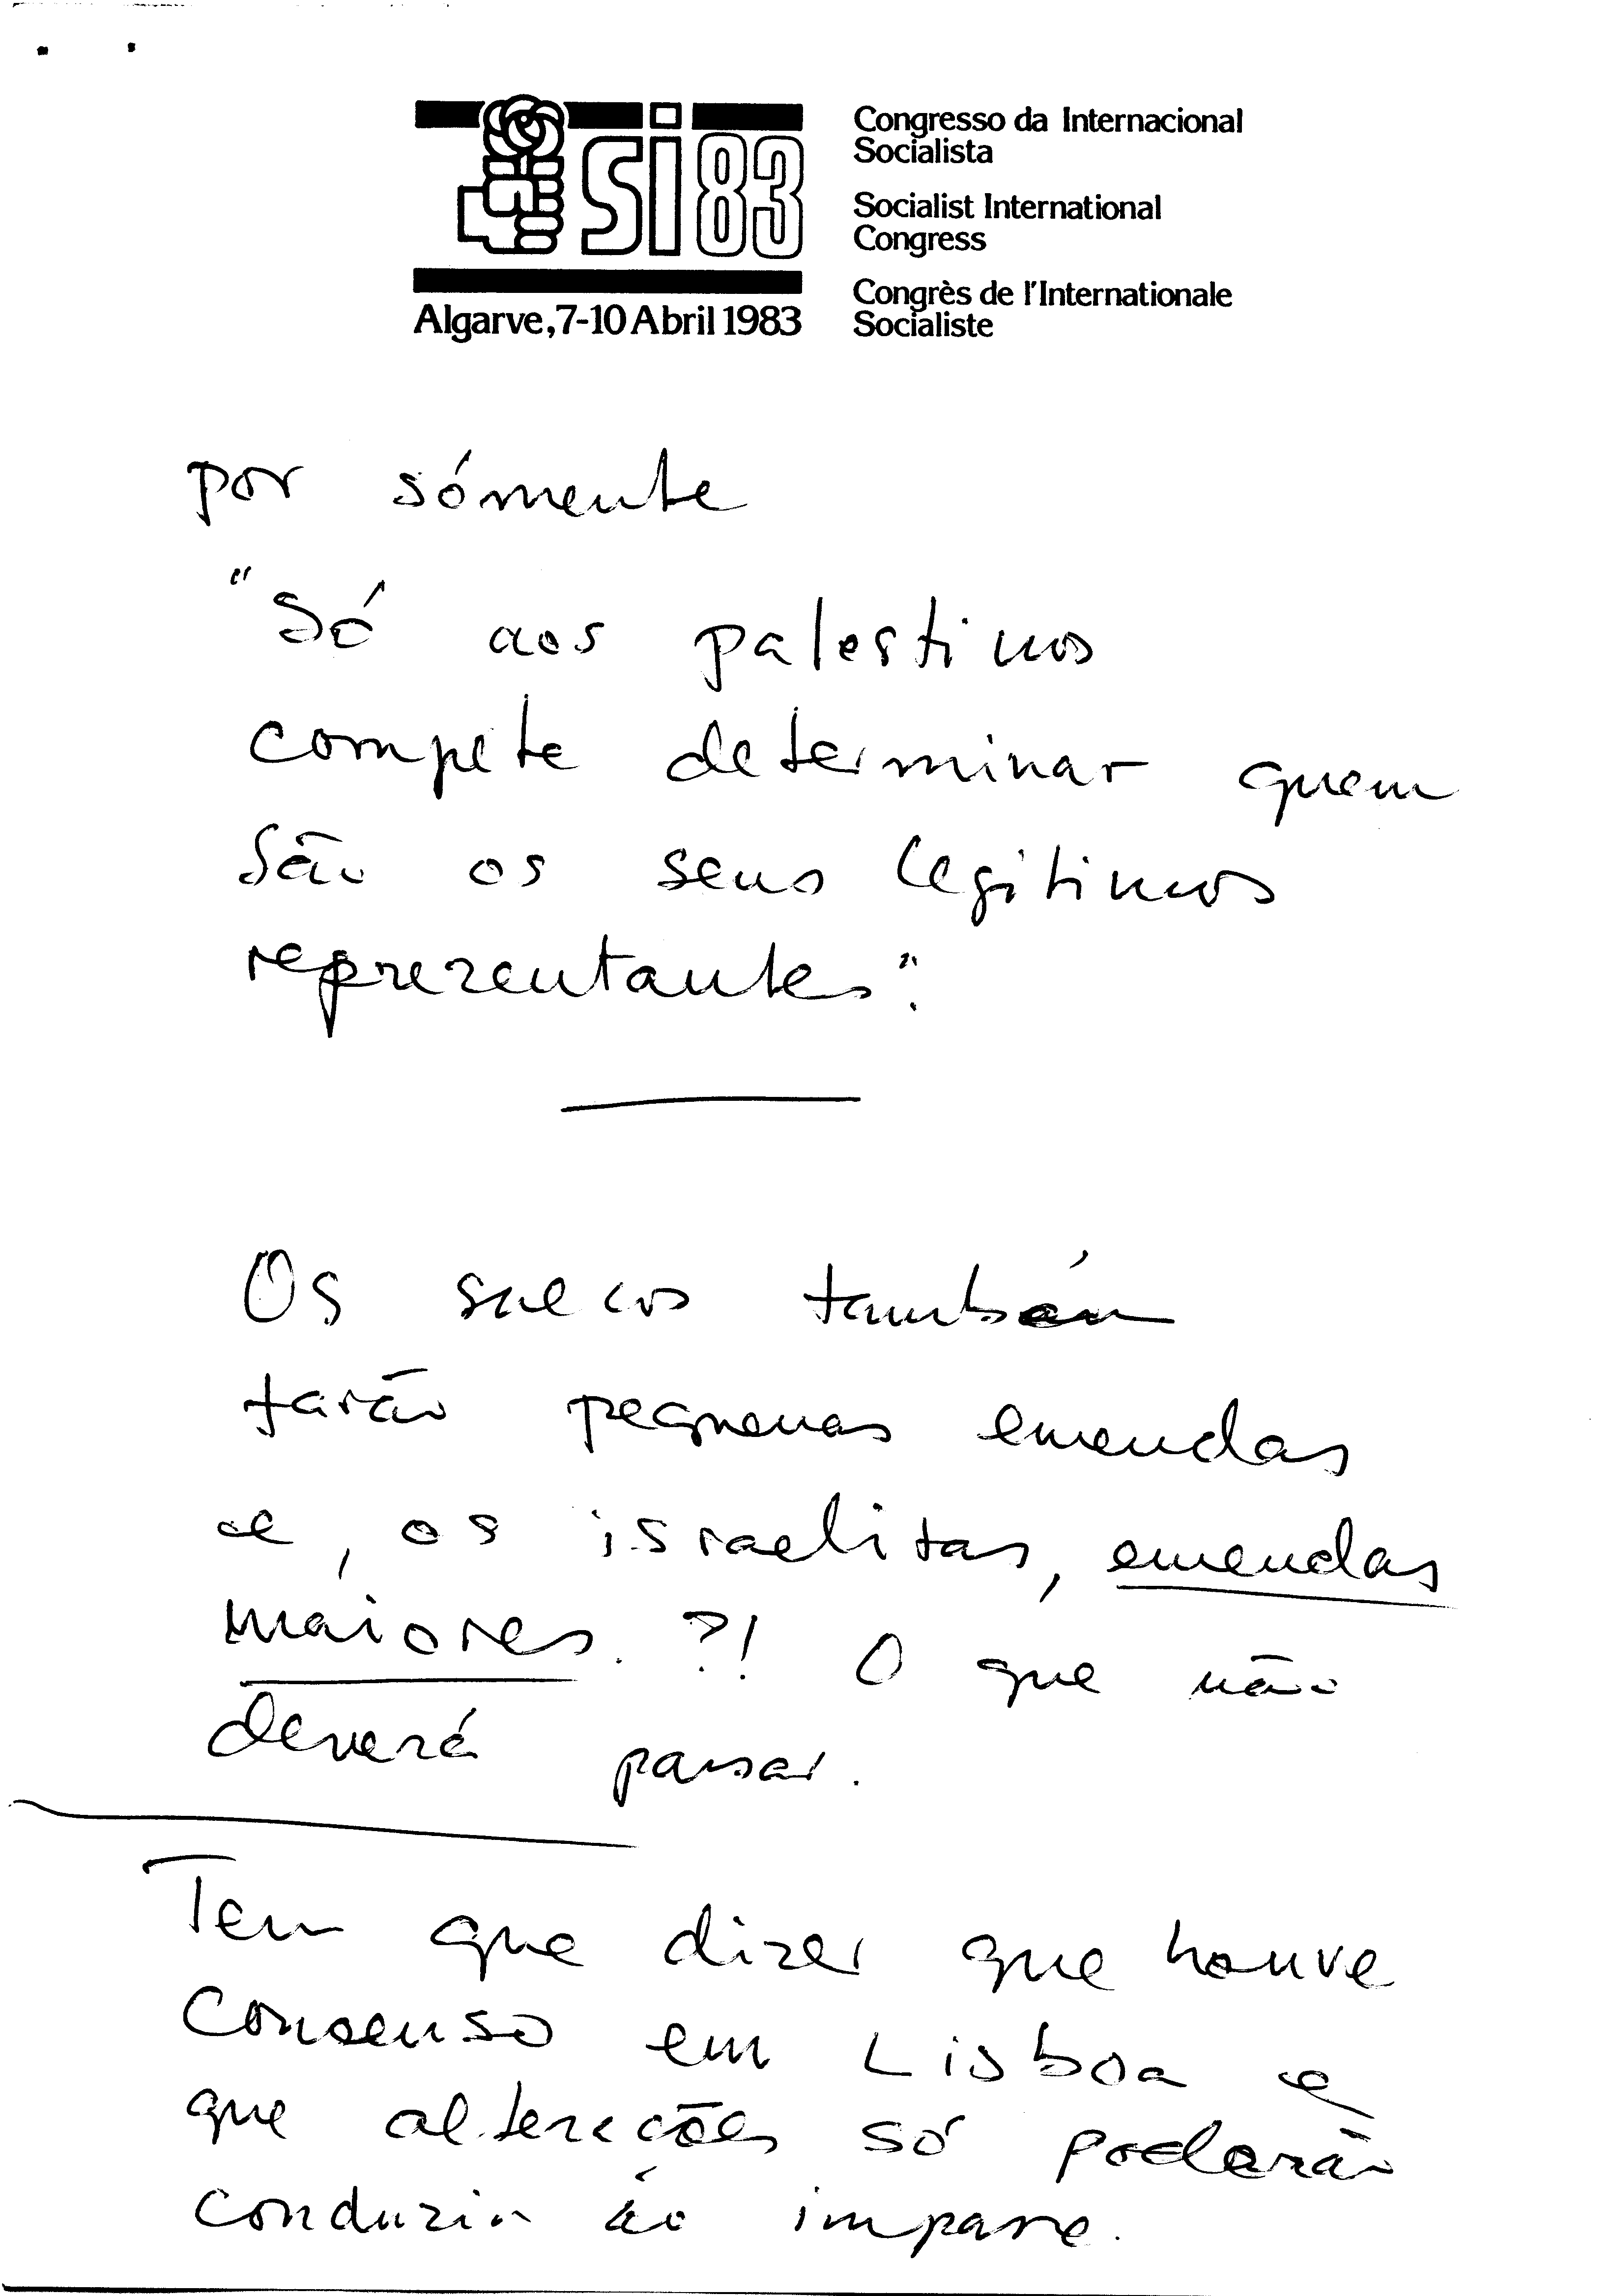 SI 83
Algarve, 7-10 Abril 1983
Congresso da Internacional
Socialista
Socialist International
Congress
Congrès de l'Internationale
Socialiste
por sómente
"Só aos palestinos
compete determinar quem
são os seus legítimos
reprezentantes".
Os suecos também
farão pequenas emendas
e, os israelitas, emendas
maiores. ?! O que não
deverá passar.
Tem que dizer que houve
consenso em Lisboa e
que alterações só poderão
conduzir ào impasse.